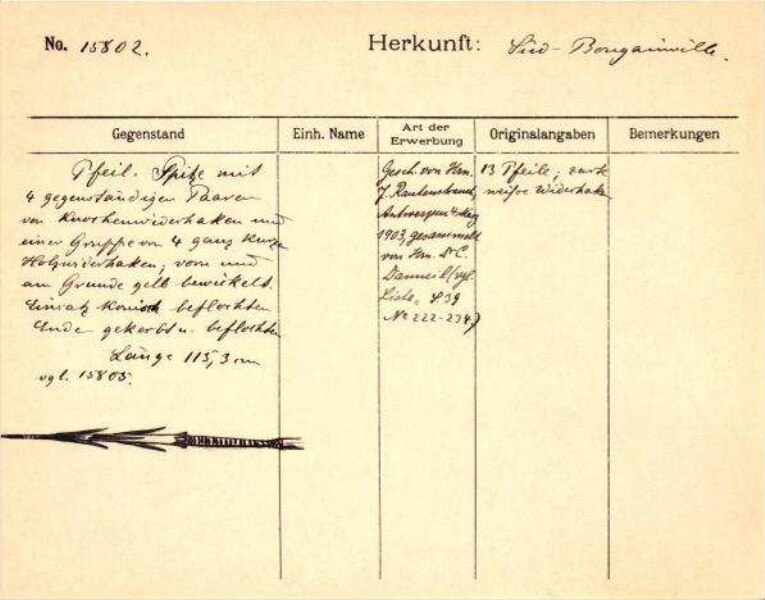 No. 15802.
Herkunft: Süd-Bougainville.
Gegenstand
Einh. Name
Art der Erwerbung
Originalangaben
Bemerkungen
Pfeil. Spitze mit
4 gegenständigen Paaren
von Knochenwiderhaken und
einer Gruppe von 4 ganz kurzen
Holzwiderhaken; vorn und
am Grunde gelb bewickelt.
Einsatz konisch beflochten
Ende gekerbt u. beflochten
Länge 115,3 cm
vgl. 15805.
Gesch. von Hrn.
J. Rautenstrauch,
Antwerpen
1903, gesammelt
von Hrn. Dr C.
Danneil (vgl.
Liste, S. 39
No 222-234.)
13 Pfeile;
Widerhaken